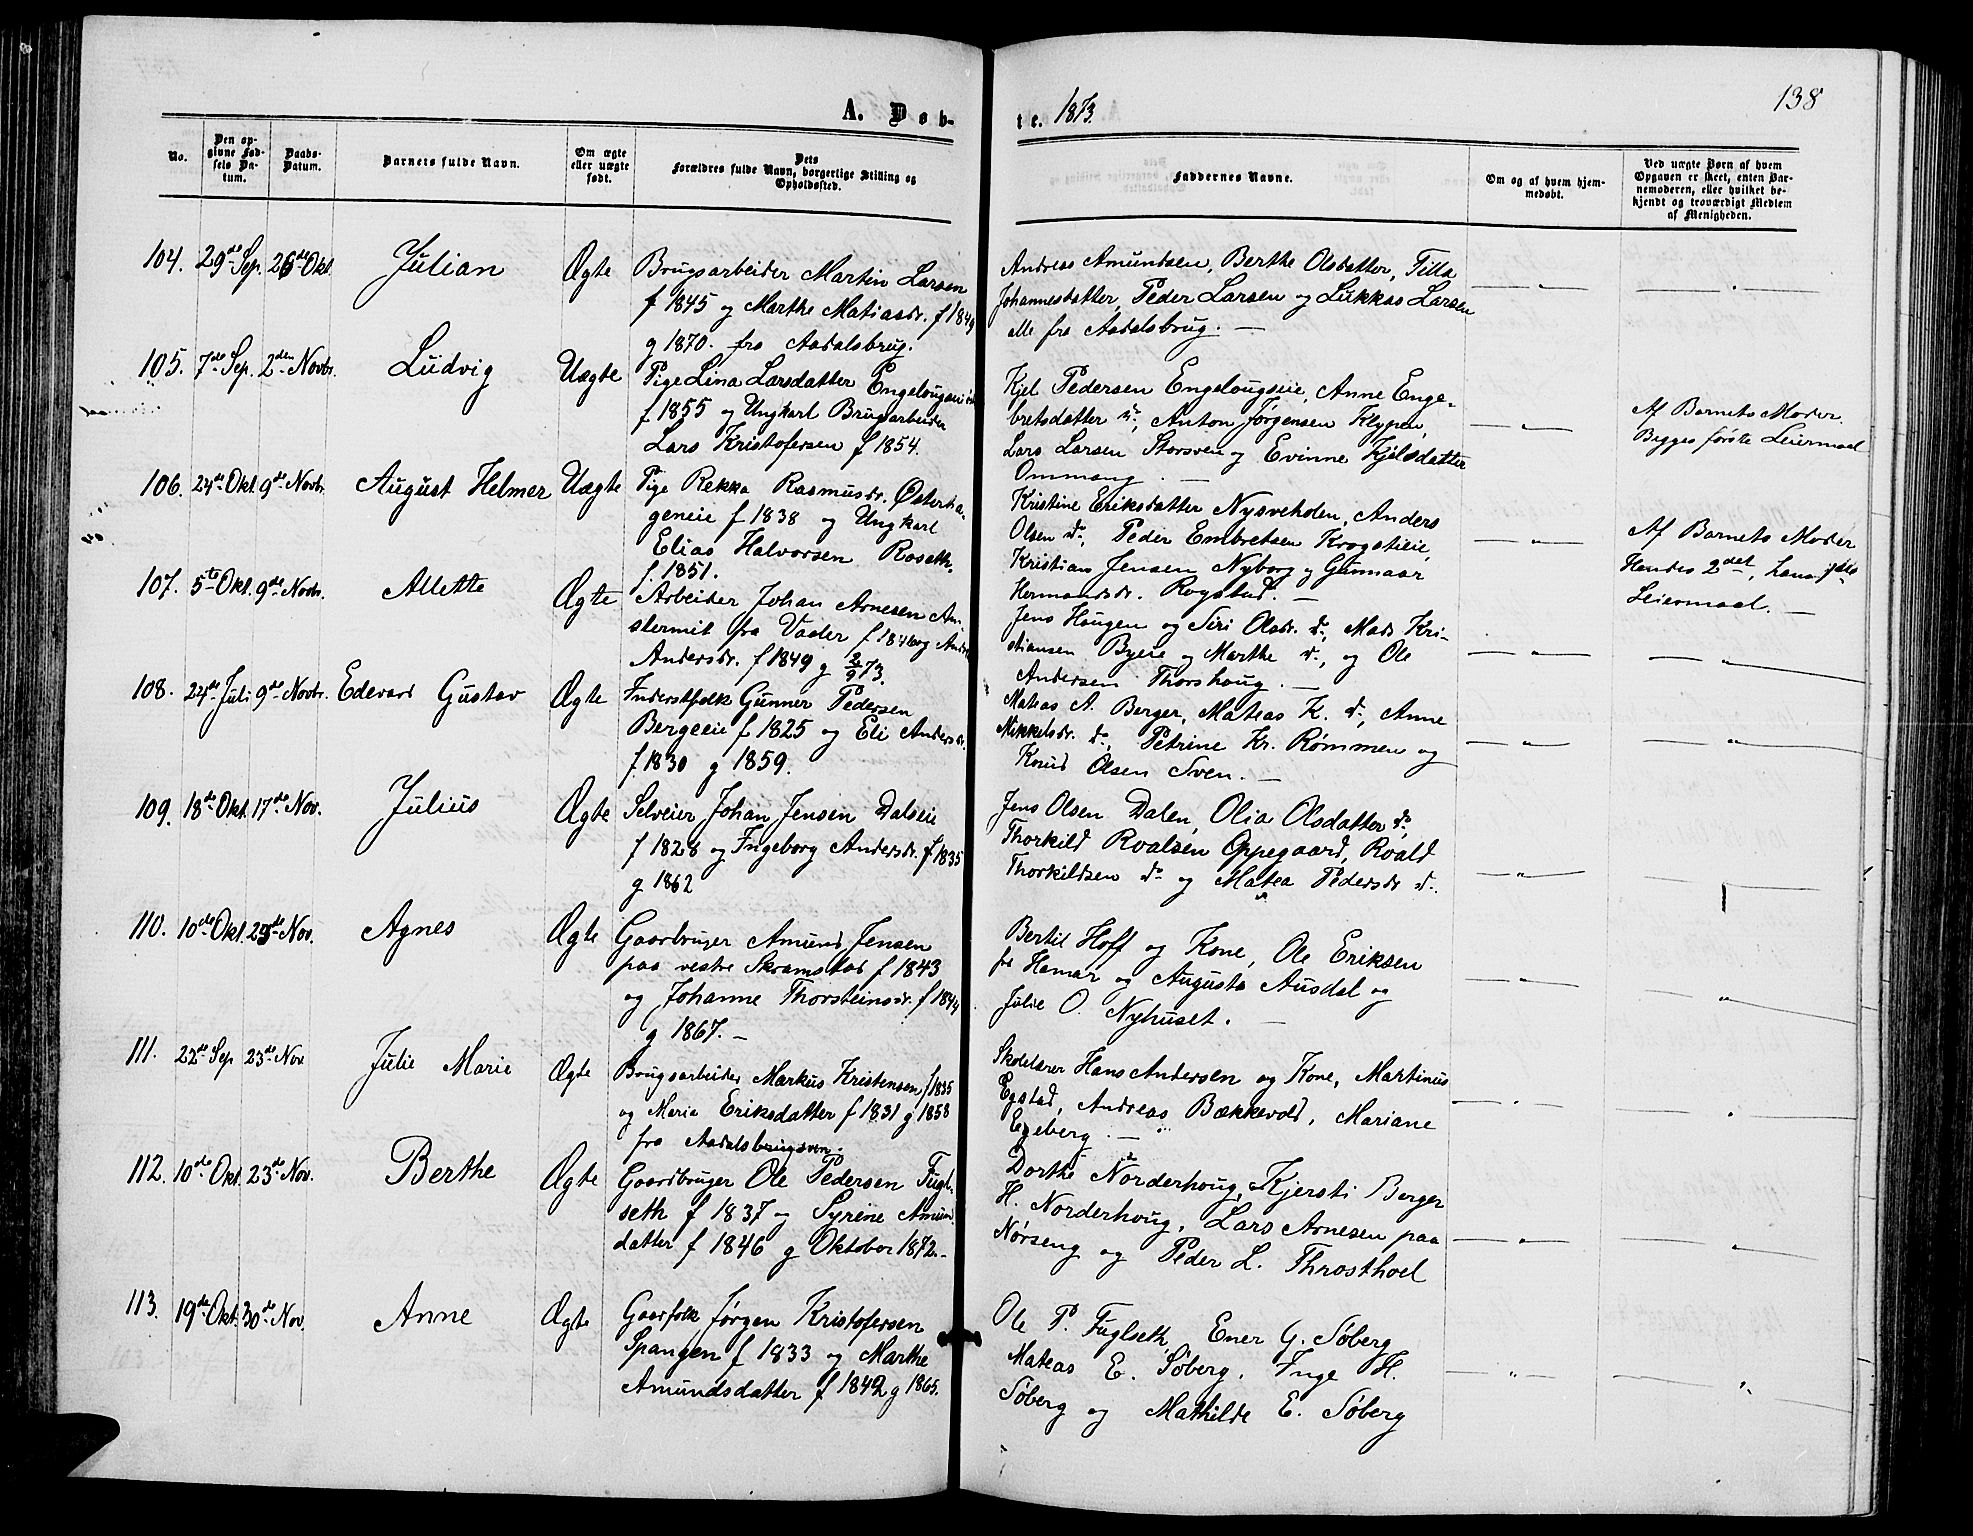 138
A. Døb-
te. 1873.
No.
Den op-
givne Fød-
sels Da-
tum.
Daabs-
Datum.
Barnets fulde Navn.
Om ægte
eller uægte
født.
Dets
Forældres fulde Navn, borgerlige Stilling og
Opholdssted.
Faddernes Navne.
Om og af hvem hjem-
medøbt.
Ved uægte Børn af hvem
Opgaven er skeet, enten Bar-
nemoderen, eller hvilket be-
kjendt og troværdigt Medlem
af Menigheden.
104. 29de Sep. 26de Okt. Julian Ægte
Brugsarbeider Martin Larsen
f 1845 og Marthe Matiasdr. f 1849
g 1870. fra Aadalsbrug.
Andreas Amundsen, Berthe Olsdatter, Tilla
Johannesdatter, Peder Larsen og Lukkas Larsen
alle fra Aadalsbrug. —
105. 7de Sep. 2den Novbr. Ludvig Uægte
Pige Lina Larsdatter Engelougeneie
f 1855 og Ungkarl Brugsarbeider
Lars Kristofersen f 1854.
Kjel Pedersen Engelougseie, Anne Enge-
bretsdatter do, Anton Jørgensen Klypen,
Lars Larsen Storsveen og Evinne Kjelsdatter
Ommang. —
Af Barnets Moder.
Begges første Leiermaal
106. 24de Okt. 9de Novbr. August Helmer Uægte
Pige Rekka Rasmusdr. Østerha-
geneie f 1838 og Ungkarl
Elias Halvorsen Roseth.
f. 1851.
Kristine Eriksdatter Nysveholen, Anders
Olsen do, Peder Embretsen Krogstieie,
Kristian Jensen Nyborg og Gunnaar
Hermandsdr. Rogstad. —
Af Barnets Moder
Hendes 2det, hans 1ste
Leiermaal. —
107. 5te Okt. 9de Novbr. Allette Ægte
Arbeider Johan Arnesen Am-
slermit fra Vaaler f 1846 og
Andersdr. f 1849 g 2/9 73.
Jens Haugen og Siri Olsdr. do, Mads Kri-
stiansen Byeie og Marthe do, og Ole
Andersen Thorshoug. —
108. 24de Juli 9de Novbr. Edevard Gustav Ægte
Inderstfolk Gunner Pedersen
Bergeeie f 1825 og Eli Andersdr.
f 1830 g 1859.
Matias A. Berger, Mateas K. do, Anne
Mikkelsdr. do, Petrine Kr. Rømmen og
Knud Olsen Sven. —
109. 18de Okt. 17de Nov. Julius Ægte
Selveier Johan Jensen Dalseie
f 1828 og Ingeborg Andersdr. f 1835
g 1862
Jens Olsen Dalen, Olia Olsdatter do,
Thorkild Roalsen Oppegaard, Roald
Thorkildsen do og Matea Pedersdr do.
110. 10de Okt. 23de Nov. Agnes Ægte
Gaarbruger Amund Jensen
paa vestre Skramstad f 1843
og Johanne Thorsteinsdr. f 1844
g 1867. —
Bertil Hoff og Kone, Ole Eriksen
fra Hamar og Augusta Ausdal og
Julie O. Nyhuset. —
111. 22de Sep 23de Nov Julie Marie Ægte
Brugsarbeider Markus Kristensen f 1835
og Maria Eriksdatter f 1831 g 1858
fra Aadalsbrugsven.
Skolelærer Hans Andersen og Kone, Martinus
Egstad, Andreas Bækkevold, Mariane
Egeberg. —
112. 10de Okt. 23de Nov. Berthe Ægte
Gaardbruger Ole Pedersen Fugl-
seth f 1837 og Syrine Amun-
datter f 1846 g Oktober 1872.
Dorthe Norderhoug, Kjersti Berger
H. Norderhoug, Lars Arnesen paa
Nørseng og Peder L. Throsthoel
113. 19de Okt. 30de Nov. Anne Ægte
Gaarfolk Jørgen Kristofersen
Spangen f 1833 og Marthe
Amundsdatter f 1842 g 1865.
Ole P. Fuglseth, Ener G. Søberg
Mateas E. Søberg, Inge H.
Søberg og Mathilde E. Søberg